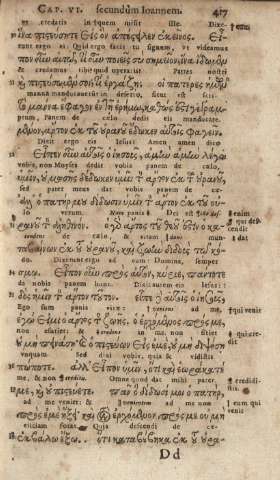 CAP. VI. secundùm Ioannem. 417
vt credatis in quem misit ille. Dixe-
ἵνα πιστεύσητε εἰς ὃν ἀπέστειλεν ἐκεῖνος. Εἶ-
runt ergo ei: Quid ergo facis tu signum, vt videamus
πον οὖν αὐτῷ, τί οὖν ποιεῖς σὺ σημεῖον, ἵνα ἴδωμεν
& credamus tibi? quid operaris? Patres nostri
καὶ πιστεύσωμέν σοι; τί ἐργάζῃ; οἱ πατέρες ἡμῶν
manna manducauerunt in deserto, sicut est scriptum,
τὸ μάννα ἔφαγον ἐν τῇ ἐρήμῳ, καθώς ἐστι γεγραμ-
Panem de caelo dedit eis manducare.
μένον, ἄρτον ἐκ τοῦ οὐρανοῦ ἔδωκεν αὐτοῖς φαγεῖν.
Dixit ergo eis Iesus: Amen amen dico
Εἶπεν οὖν αὐτοῖς ὁ ἰησοῦς, ἀμὴν ἀμὴν λέγω
vobis, non Moyses dedit vobis panem de caelo,
ὑμῖν, οὐ μωσῆς δέδωκεν ὑμῖν τὸν ἄρτον ἐκ τοῦ οὐρανοῦ,
sed pater meus dat vobis panem de cae-
ἀλλ' ὁ πατήρ μου δίδωσιν ὑμῖν τὸν ἄρτον ἐκ τοῦ οὐ-
lo verum. Panis Dei est
ρανοῦ τὸν ἀληθινόν. ὁ γὰρ ἄρτος τοῦ θεοῦ ἐστιν ὁ κα-
de caelo, & vitam mun-
ταβαίνων ἐκ τοῦ οὐρανοῦ, καὶ ζωὴν διδοὺς τῷ κό-
do. Dixerunt ergo ad eum: Domine, semper
σμῳ. Εἶπον οὖν πρὸς αὐτόν, κύριε, πάντοτε
da nobis panem hunc. Dixit autem eis Iesus:
δὸς ἡμῖν τὸν ἄρτον τοῦτον. εἶπε δὲ αὐτοῖς ὁ ἰησοῦς,
Ego sum panis vitae: ad me,
ἐγώ εἰμι ὁ ἄρτος τῆς ζωῆς. ὁ ἐρχόμενος πρός με,
non esuriet: & in me, non sitiet
οὐ μὴ πεινάσῃ· καὶ ὁ πιστεύων εἰς ἐμέ, οὐ μὴ διψήσῃ
vnquam. Sed dixi vobis, quia & vidistis
πώποτε. ἀλλ' εἶπον ὑμῖν, ὅτι καὶ ἑωράκατέ
me, & non Omne quod dat mihi pater,
με, καὶ οὐ πιστεύετε. πᾶν ὃ δίδωσί μοι ὁ πατήρ,
ad me veniet: & ad me non
πρὸς ἐμὲ ἥξει· καὶ τὸν ἐρχόμενον πρός με οὐ μὴ
eiiciam foras. Quia descendi de cae-
ἐκβάλω ἔξω. ὅτι καταβέβηκα ἐκ τοῦ οὐρα-
Dd